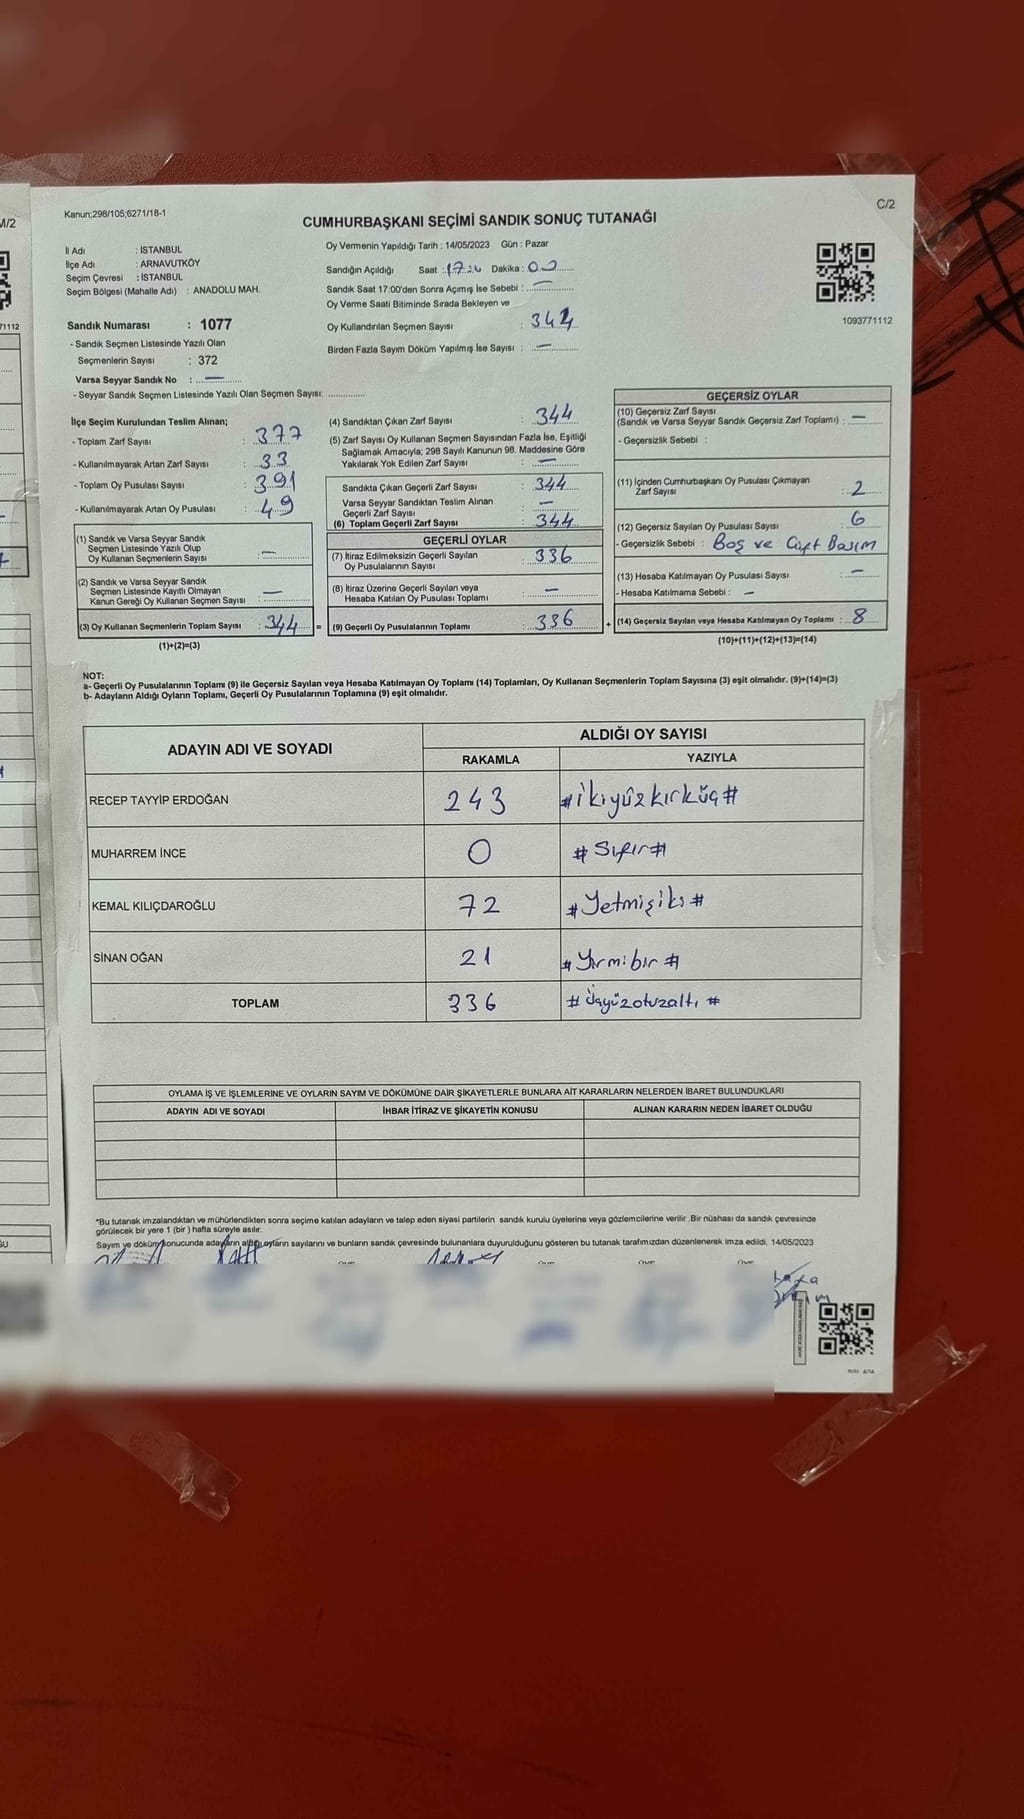 M/2
71112
Kanun;298/105;6271/18-1
C/2
CUMHURBAŞKANI SEÇİMİ SANDIK SONUÇ TUTANAĞI
İl Adı : İSTANBUL
İlçe Adı : ARNAVUTKÖY
Seçim Çevresi : İSTANBUL
Seçim Bölgesi (Mahalle Adı) : ANADOLU MAH.
Oy Vermenin Yapıldığı Tarih : 14/05/2023 Gün : Pazar
Sandığın Açıldığı Saat : Dakika : 00
Sandık Saat 17:00'den Sonra Açımış İse Sebebi : —
Oy Verme Saati Bitiminde Sırada Bekleyen ve
Oy Kullandırılan Seçmen Sayısı : 344
Birden Fazla Sayım Döküm Yapılmış İse Sayısı : —
1093771112
Sandık Numarası : 1077
- Sandık Seçmen Listesinde Yazılı Olan
Seçmenlerin Sayısı : 372
Varsa Seyyar Sandık No : —
- Seyyar Sandık Seçmen Listesinde Yazılı Olan Seçmen Sayısı:
İlçe Seçim Kurulundan Teslim Alınan;
- Toplam Zarf Sayısı : 377
- Kullanılmayarak Artan Zarf Sayısı : 33
- Toplam Oy Pusulası Sayısı : 391
- Kullanılmayarak Artan Oy Pusulası : 49
(1) Sandık ve Varsa Seyyar Sandık
Seçmen Listesinde Yazılı Olup
Oy Kullanan Seçmenlerin Sayısı : —
(2) Sandık ve Varsa Seyyar Sandık
Seçmen Listesinde Kayıtlı Olmayan
Kanun Gereği Oy Kullanan Seçmen Sayısı : —
(3) Oy Kullanan Seçmenlerin Toplam Sayısı : 344 =
(1)+(2)=(3)
(4) Sandıktan Çıkan Zarf Sayısı : 344
(5) Zarf Sayısı Oy Kullanan Seçmen Sayısından Fazla İse, Eşitliği
Sağlamak Amacıyla; 298 Sayılı Kanunun 98. Maddesine Göre
Yakılarak Yok Edilen Zarf Sayısı : —
Sandıkta Çıkan Geçerli Zarf Sayısı : 344
Varsa Seyyar Sandıktan Teslim Alınan
Geçerli Zarf Sayısı : —
(6) Toplam Geçerli Zarf Sayısı : 344
GEÇERLİ OYLAR
(7) İtiraz Edilmeksizin Geçerli Sayılan
Oy Pusulalarının Sayısı : 336
(8) İtiraz Üzerine Geçerli Sayılan veya
Hesaba Katılan Oy Pusulası Toplamı : —
(9) Geçerli Oy Pusulalarının Toplamı : 336 +
GEÇERSİZ OYLAR
(10) Geçersiz Zarf Sayısı
(Sandık ve Varsa Seyyar Sandık Geçersiz Zarf Toplamı) : —
- Geçersizlik Sebebi :
(11) İçinden Cumhurbaşkanı Oy Pusulası Çıkmayan
Zarf Sayısı : 2
(12) Geçersiz Sayılan Oy Pusulası Sayısı : 6
- Geçersizlik Sebebi : Boş ve Çift Basım
(13) Hesaba Katılmayan Oy Pusulası Sayısı : —
- Hesaba Katılmama Sebebi : —
(14) Geçersiz Sayılan veya Hesaba Katılmayan Oy Toplamı : 8
(10)+(11)+(12)+(13)=(14)
NOT:
a- Geçerli Oy Pusulalarının Toplamı (9) ile Geçersiz Sayılan veya Hesaba Katılmayan Oy Toplamı (14) Toplamları, Oy Kullanan Seçmenlerin Toplam Sayısına (3) eşit olmalıdır. (9)+(14)=(3)
b- Adayların Aldığı Oyların Toplamı, Geçerli Oy Pusulalarının Toplamına (9) eşit olmalıdır.
ADAYIN ADI VE SOYADI ALDIĞI OY SAYISI
RAKAMLA YAZIYLA
RECEP TAYYİP ERDOĞAN 243 #ikiyüzkırküç#
MUHARREM İNCE 0 #Sıfır#
KEMAL KILIÇDAROĞLU 72 #Yetmişiki#
SİNAN OĞAN 21 #Yirmibir#
TOPLAM 336 #Üçyüzotuzaltı#
OYLAMA İŞ VE İŞLEMLERİNE VE OYLARIN SAYIM VE DÖKÜMÜNE DAİR ŞİKAYETLERLE BUNLARA AİT KARARLARIN NELERDEN İBARET BULUNDUKLARI
ADAYIN ADI VE SOYADI İHBAR İTİRAZ VE ŞİKAYETİN KONUSU ALINAN KARARIN NEDEN İBARET OLDUĞU
*Bu tutanak imzalandıktan ve mühürlendikten sonra seçime katılan adayların ve talep eden siyasi partilerin sandık kurulu üyelerine veya gözlemcilerine verilir .Bir nüshası da sandık çevresinde
görülecek bir yere 1 (bir ) hafta süreyle asılır.
Sayım ve döküm sonucunda adayların aldığı oyların sayılarını ve bunların sandık çevresinde bulunanlara duyurulduğunu gösteren bu tutanak tarafımızdan düzenlenerek imza edildi. 14/05/2023